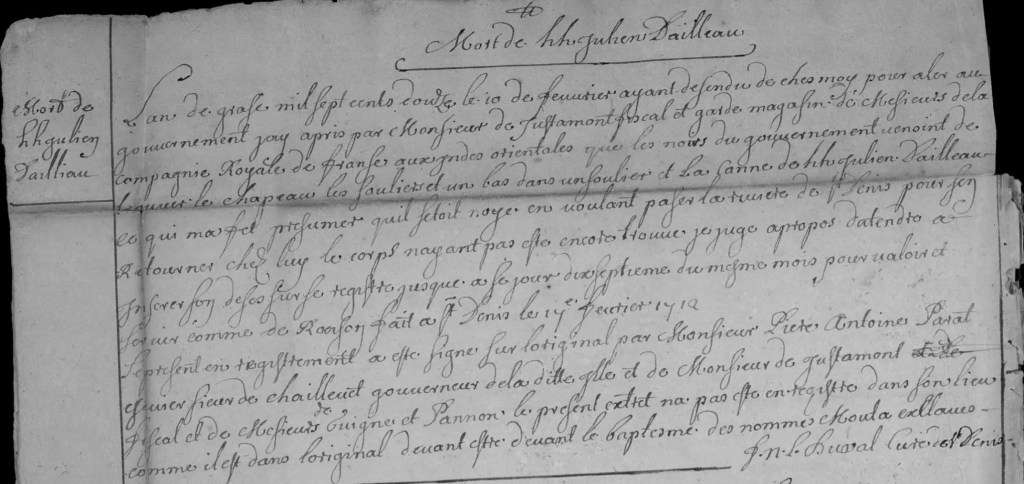 Mort de hh Julien Dailleau
Mort de
hh Julien
Dailliau
Lan de grase mil sept cents douze le 10 de feuvrier ayant desendu de ches moy pour aler au
gouvernement jay apris par Monsieur de Justamont fiscal et garde magasin de Mesieurs de la
compagnie Royale de franse aux yndes orientales que les noirs du gouvernement venoint de
trouver le chapeau les souliers et un bas dans un soulier et La Canne de hh Julien Dailleau
ce qui ma fet presumer quil setoit noye en voulant paser la riviere de st Denis pour sen
Retourner chez luy le corps nayant pas este encore trouve je juge apropos datendre a
Inserer son deses sur se registre jusque a se jour dixseptieme du mesme mois pour valoir et
servir comme de Raison fait a st Denis le 17e fevrier 1712
Le present enregistrement a este signe sur loriginal par Monsieur Piere Antoine Parat
esquier sieur de chailleut gouverneur de la ditte ysle et de Monsieur de Justamont
fiscal et de Mesieurs de Guigne et Pannon le present extret na pas este enregistre dans son lieu
comme il est dans loriginal devant estre devant le baptesme des nommes Moula exllaves
J.n.L. Duval Curé de st Denis